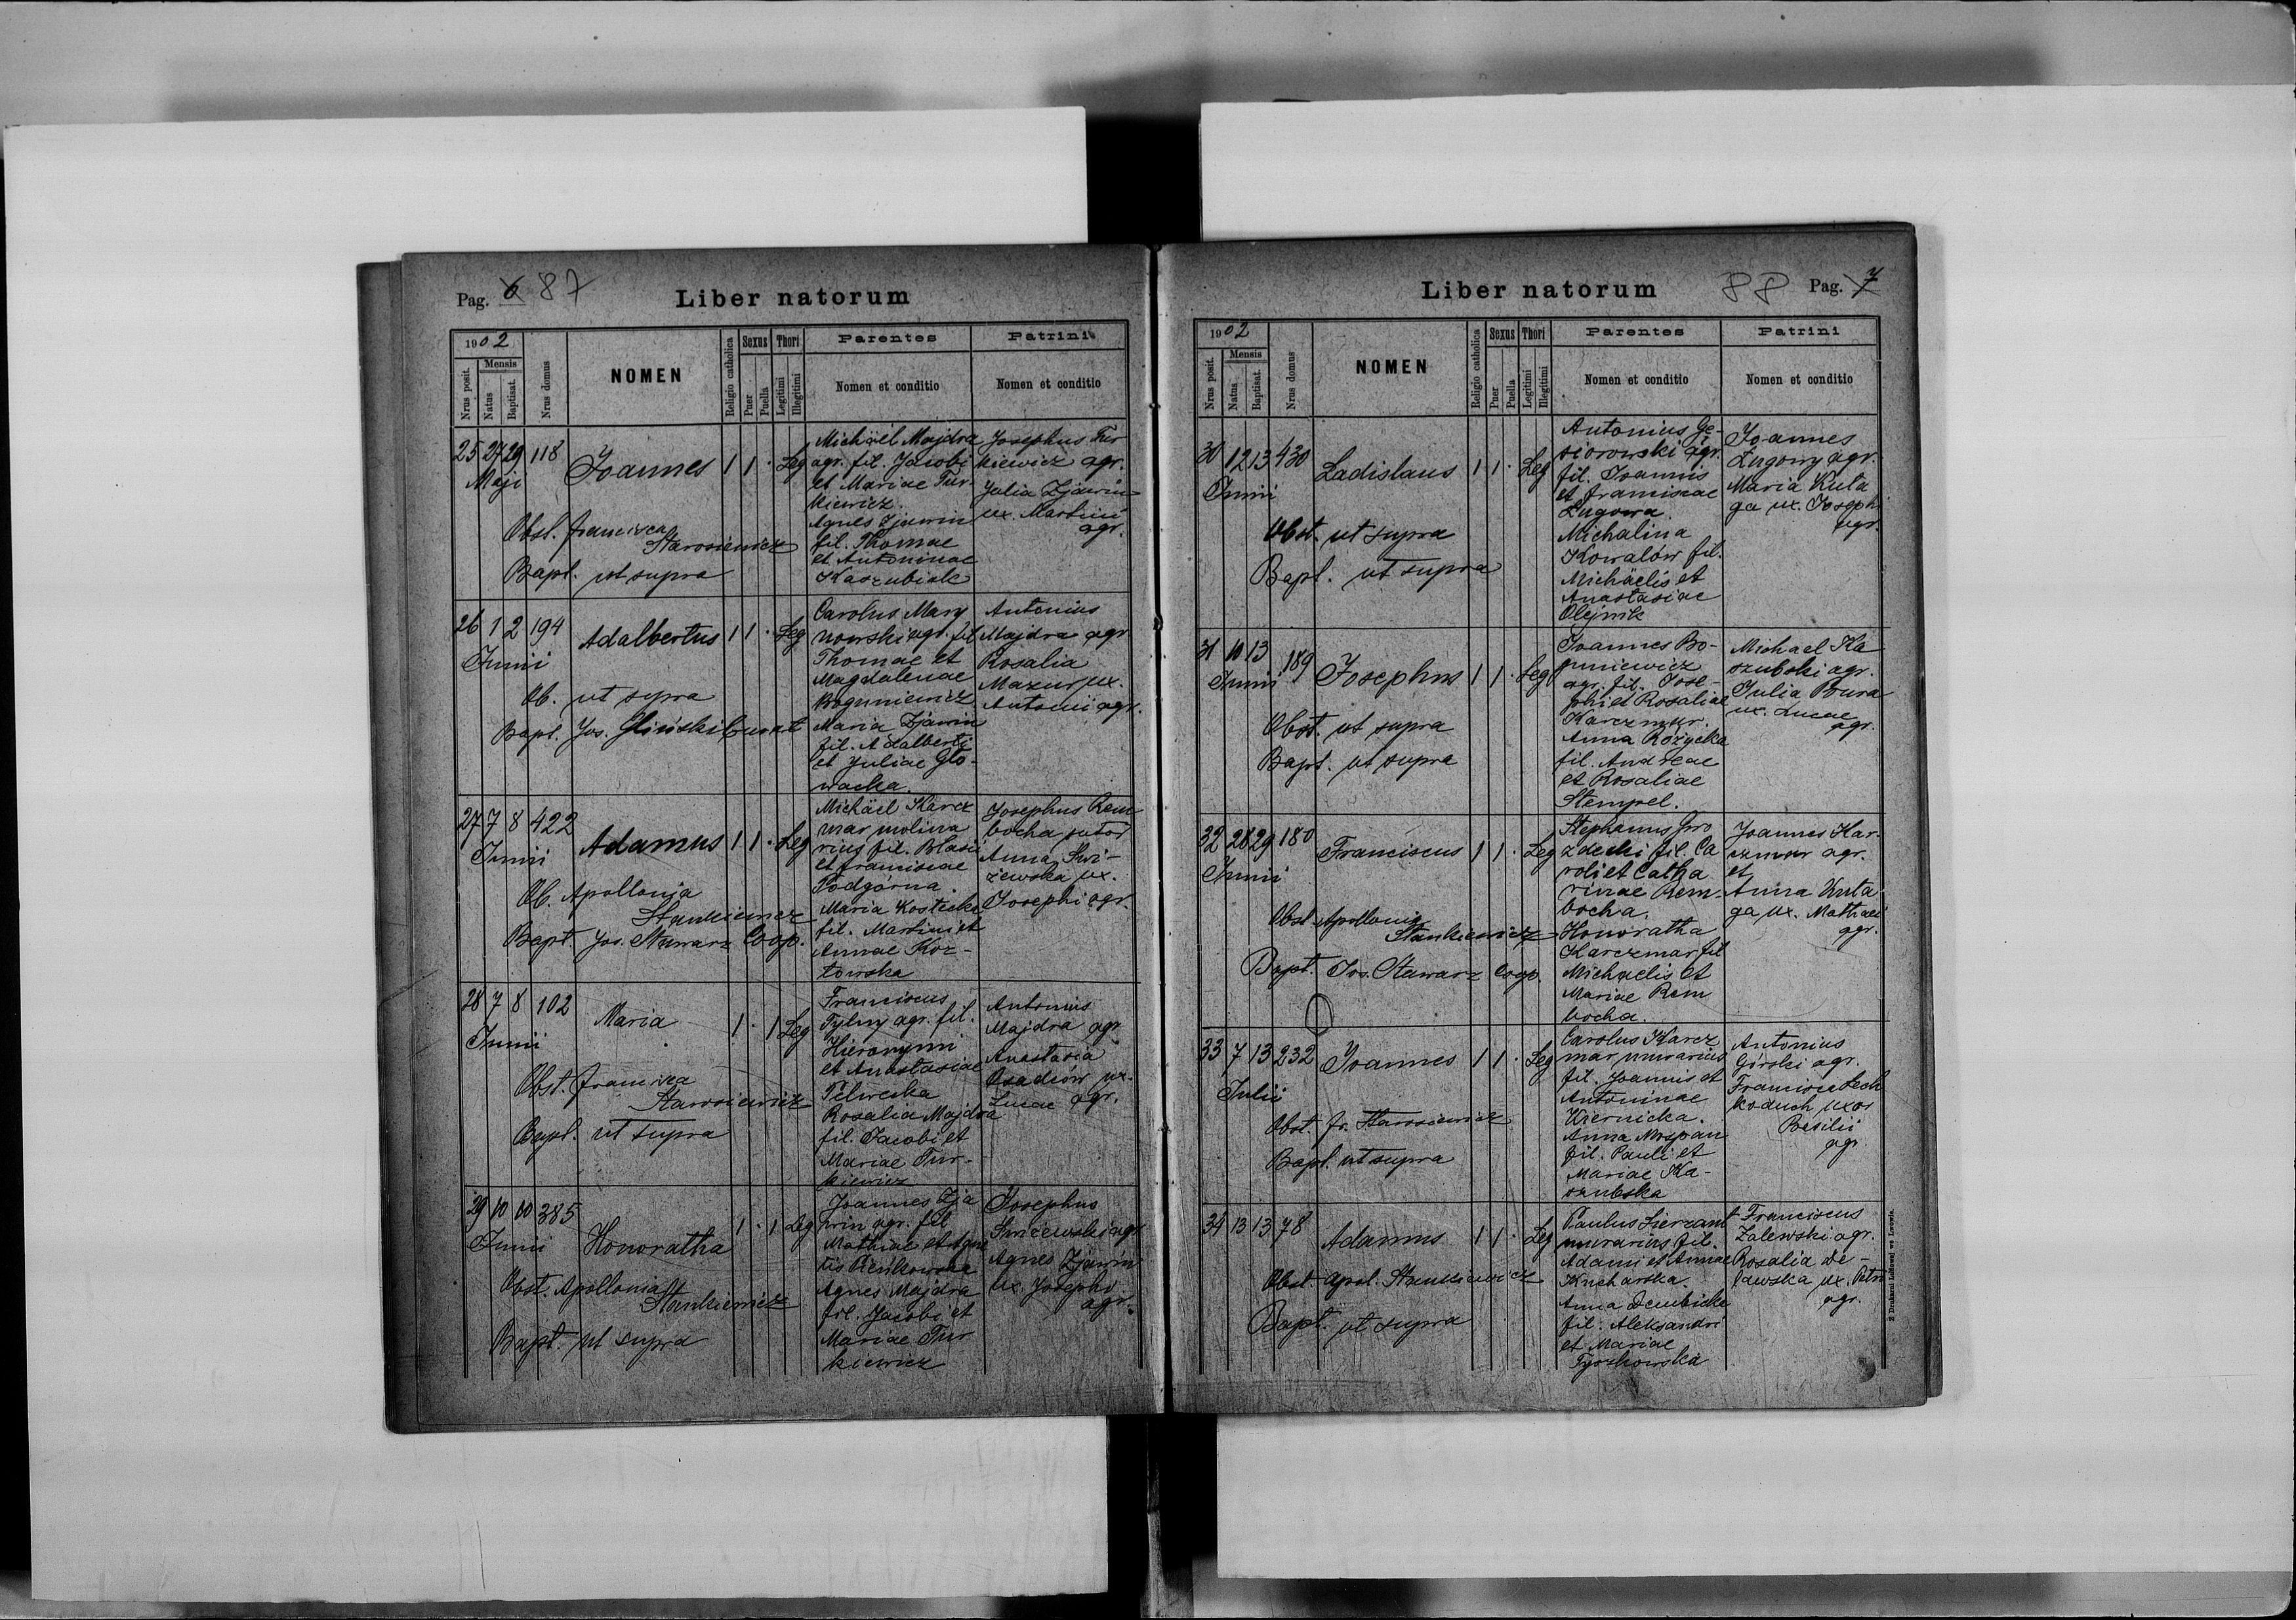 Pag. 6 87
Liber natorum
1902
Nrus posit.
Mensis
Natus
Baptisat.
Nrus domus
NOMEN
Religio catholica
Sexus
Puer
Puella
Thori
Legitimi
Illegitimi
Parentes
Nomen et conditio
Patrini
Nomen et conditio
25 27 29 118
Maji
Joannes 1 1 · Leg
Obst. Francisca
Starosiewicz
Bapt. ut supra
Michäel Majdra
agr. fil. Jacobi
et Mariae Tur-
kiewicz.
Agnes Zjawin
fil. Thomae
et Antoninae
Kaszubiak
Josephus Tur
kiewicz agr.
Julia Zjawin
ux. Martini
agr.
26 1 2 194
Junii
Adalbertus 1 1 · Leg
Ob. ut supra
Bapt. Jos. Gliński Curat
Carolus Mary
nowski agr. fil
Thomae et
Magdalenae
Boguniewicz
Maria Zjawin
fil. Adalberti
et Juliae Gło-
wacka.
Antonius
Majdra agr
Rosalia
Mazur ux.
Antonii agr.
27 7 8 422
Junii
Adamus 1 1 · Leg
Ob. Apollonia
Stankiewicz
Bapt. Jos. Stawarz Coop.
Michäel Karcz
mar molina
rius fil. Blasii
et Franciscae
Podgórna.
Maria Kostecka
fil. Martini et
Annae Koz-
łowska
Josephus Rem
bocha sutor
Anna Skwi-
żewska ux.
Josephi agr.
28 7 8 102
Junii
Maria 1 · 1 Leg
Obst. Francisca
Starosiewicz
Bapt. ut supra
Franciscus
Tylny agr. fil.
Hieronymi
et Anastasiae
Telweska
Rosalia Majdra
fil. Jacobi et
Mariae Tur-
kiewicz
Antonius
Majdra agr
Anastasia
Osadców ux.
Lucae agr.
29 10 10 385
Junii
Honoratha 1 · 1 Leg
Obst. Apollonia
Stankiewicz
Bapt. ut supra
Joannes Zja
win agr. fil
Mathiae et Agne
tis Pieńkowska
Agnes Majdra
fil. Jacobi et
Mariae Tur
kiewicz
Josephus
Skwiżewski agr
Agnes Zjawin
ux. Josephi
agr.
Liber natorum
88 Pag. 7
1902
Nrus posit.
Mensis
Natus
Baptisat.
Nrus domus
NOMEN
Religio catholica
Sexus
Puer
Puella
Thori
Legitimi
Illegitimi
Parentes
Nomen et conditio
Patrini
Nomen et conditio
30 12 13 430
Junii
Ladislaus 1 1 · Leg
Obst. ut supra
Bapt. ut supra
Antonius Gę-
siorowski agr.
fil. Joannis
et Franciscae
Ługowa.
Michalina
Kowalów fil.
Michäelis et
Anastasiae
Olejnik
Joannes
Ługowy agr.
Maria Kuła
ga ux. Joseph
agr.
31 10 13 189
Junii
Josephus 1 1 · Leg
Obst. ut supra
Bapt. ut supra
Joannes Bo-
guniewicz
agr. fil. Jose-
phi et Rosaliae
Karczmar.
Anna Różycka
fil. Andreae
et Rosaliae
Stempel.
Michael Ka
szubski agr.
Julia Poura
ux. Lucae
agr.
32 28 29 180
Junii
Franciscus 1 1 · Leg
Obst. Apollonia
Stankiewicz
Bapt. Jos. Stawarz Coop.
Stephanus Gro
zdecki fil. Ca
roli et Catha
rinae Rem-
bocha.
Honoratha
Karczmar fil
Michaelis et
Mariae Rem
bocha.
Joannes Kar-
czmar agr.
et
Anna Kuta
ga ux. Mathiae
agr.
33 7 13 232
Julii
Joannes 1 1 · Leg
Obst. Fr. Starosiewicz
Bapt. ut supra
Carolus Karcz
mar murarius
fil. Joannis et
Antoninae
Kiernicka.
Anna Mospan
fil. Pauli et
Mariae Ka-
szubska
Antonius
Górski agr.
Francisca Lech
koduch uxor
Basilii
agr.
34 13 13 78
Adamus 1 1 · Leg
Obst. Apol. Stankiewicz
Bapt. ut supra
Paulus Sierzant
murarius fil.
Adami et Annae
Kucharska.
Anna Dembicka
fil. Aleksandri
et Mariae
Tyszkowska
Franciscus
Zalewski agr.
Rosalia De-
ux. Petri
agr.
Z Drukarni Ludowej we Lwowie.